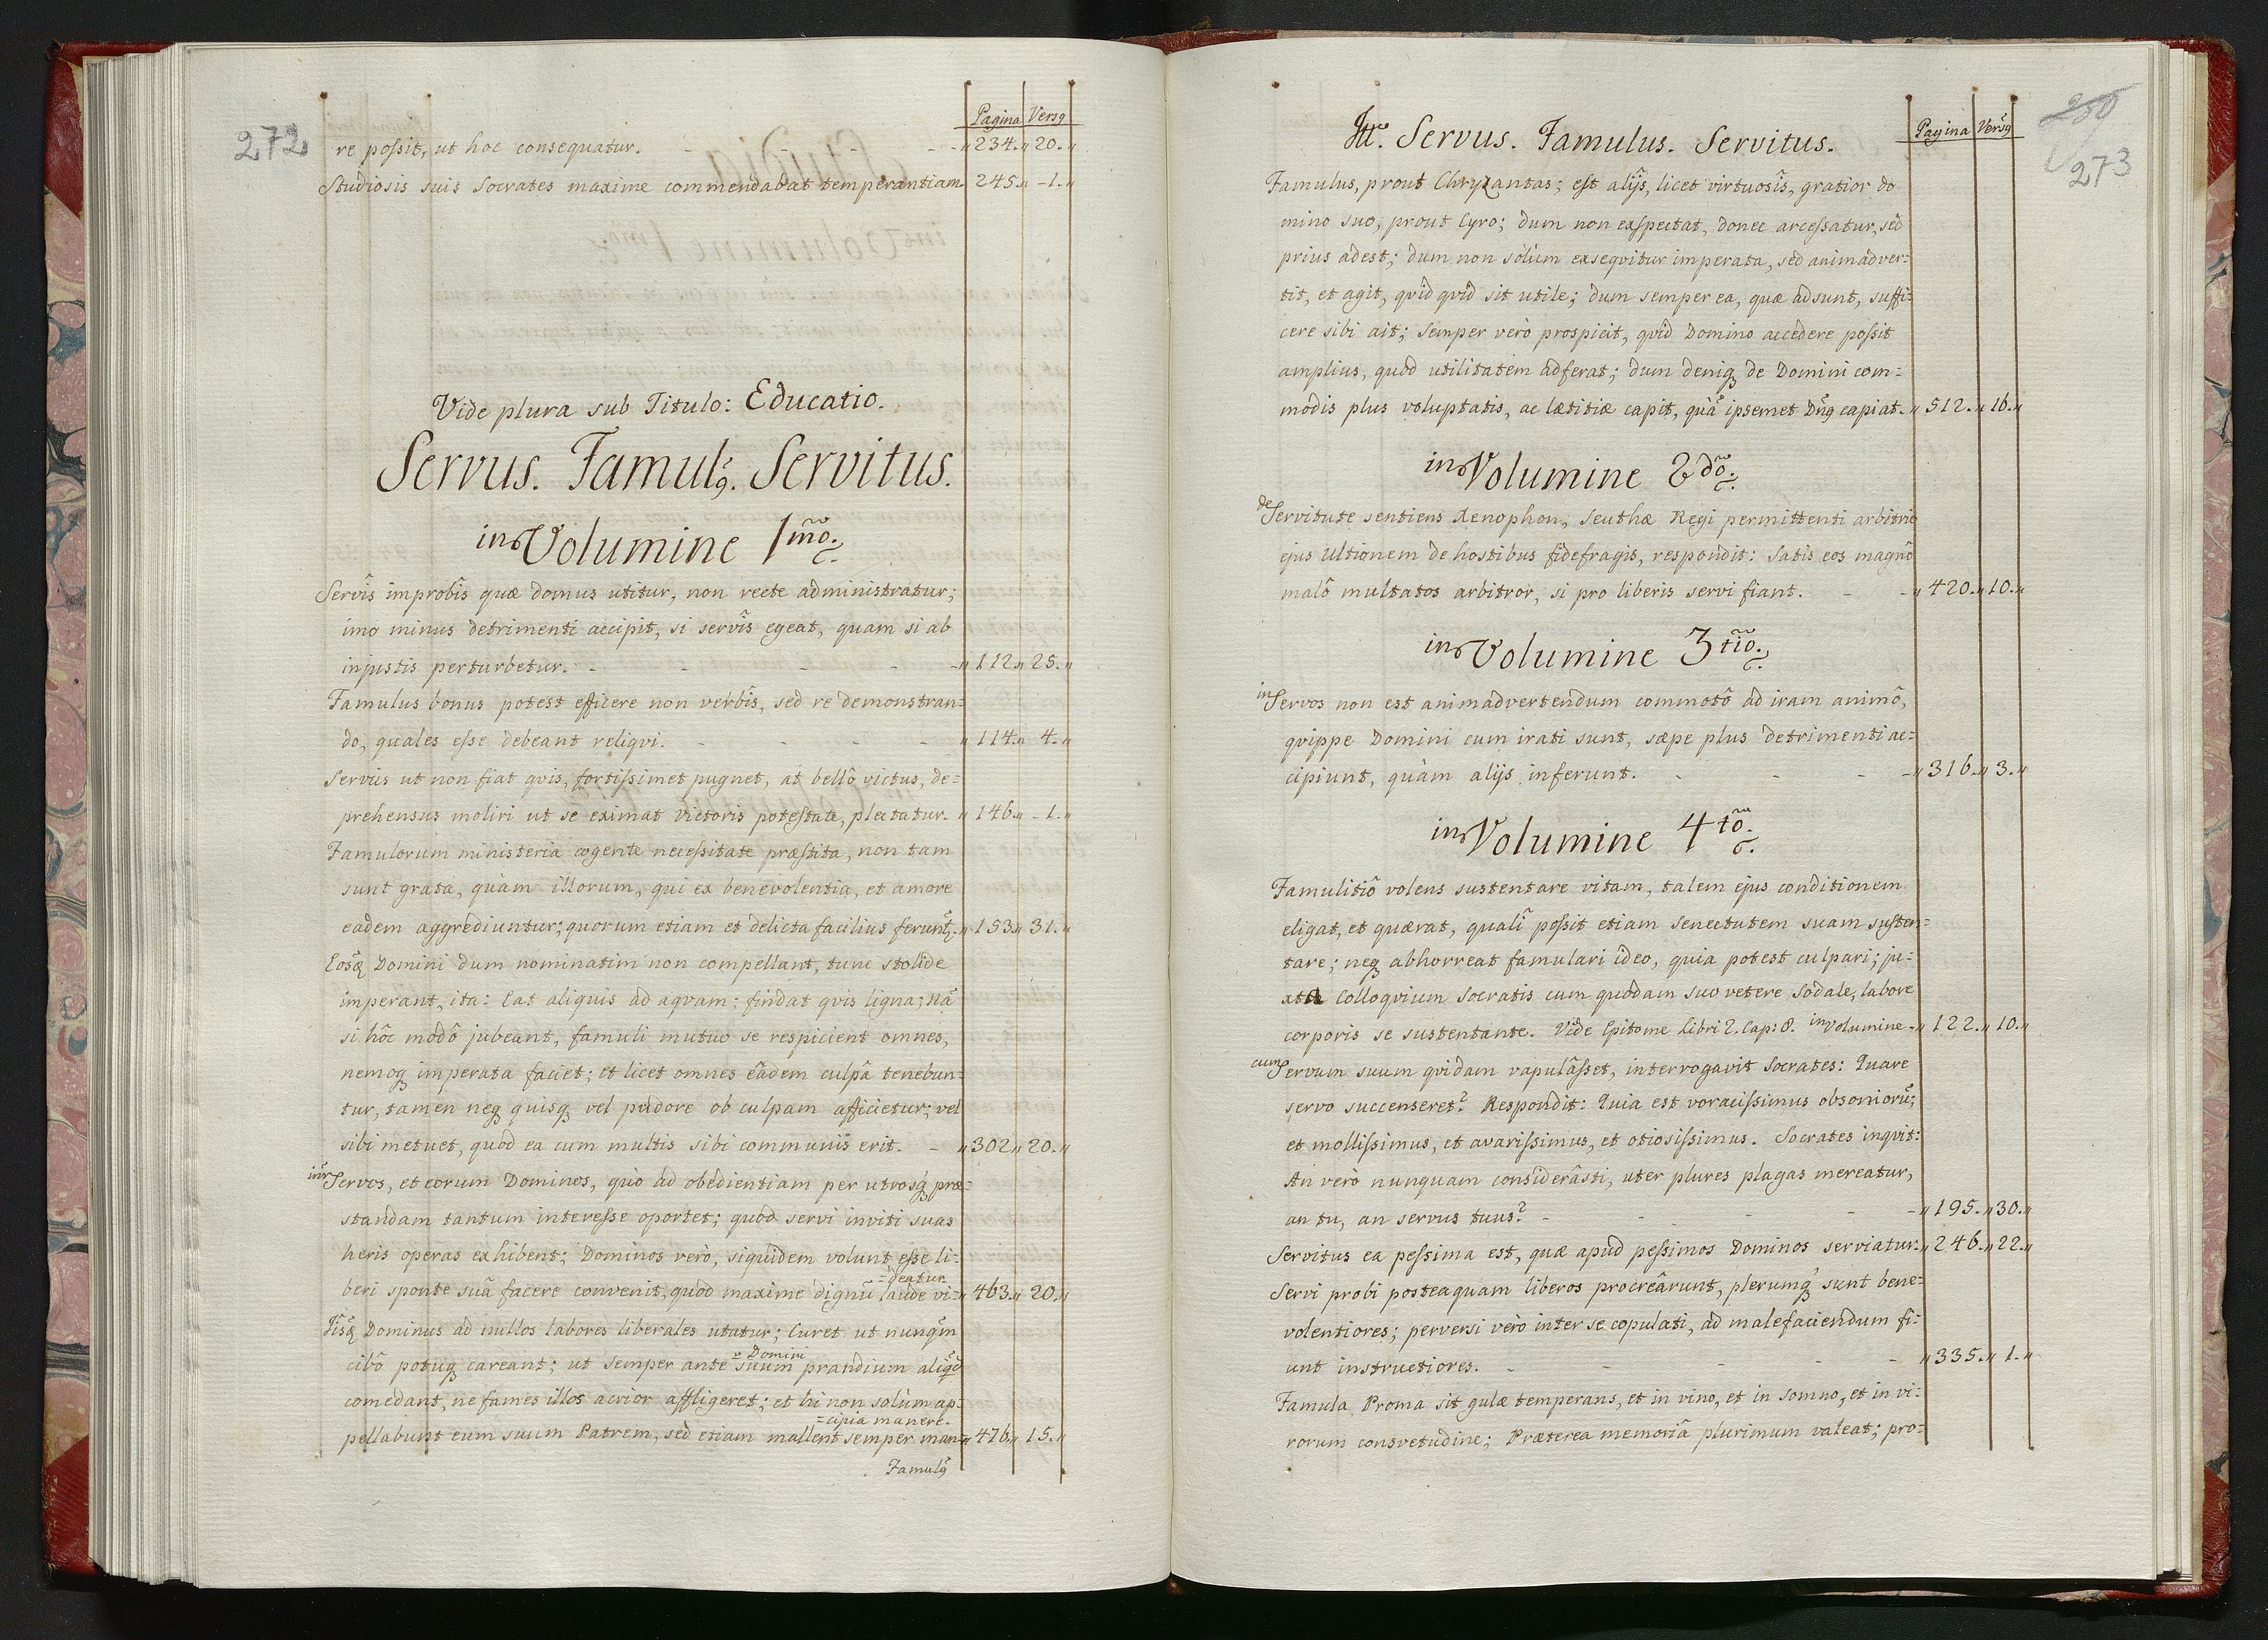 272
Pagina Versꝯ
re possit, ut hoc consequatur. - - - - „234.„20.„
Studiosis suis Socrates maxime commendabat temperantiam 245.„-1.„
Vide plura sub Titulo: Educatio.
Servus. Famulꝯ. Servitus.
in Volumine 1mo.
Servîs improbîs quæ domus utitur, non recte administratur;
imo minus detrimenti accipit, si servîs egeat, quam si ab
injustis perturbetur. - - - - -„112.„25.„
Famulus bonus potest efficere non verbîs, sed re demonstran=
do, quales esse debeant reliqvi. - - - - „114.„4.„
Servus ut non fiat qvis, fortissimet pugnet, at bellô victus, de=
prehensus moliri ut se eximat victoris potestate, plectatur. „146.„-1.„
Famulorum ministeria cogente necessitate præstita, non tam
sunt grata, quàm illorum, qui ex benevolentia, et amore
eadem aggrediuntur; quorum etiam et delicta facilius ferunt̃.„153.„31.„
Eosq̃ Domini dum nominatim non compellant, tunc stolide
imperant, ita: Eat aliquis ad aqvam: findat qvis ligna; nã
si hôc modô jubeant, famuli mutuo se respicient omnes,
nemoq imperata faciet; et licet omnes eâdem culpâ tenebun=
tur, tamen neq quisq vel pudore ob culpam afficietur; vel
sibi metuet, quòd ea cum multis sibi communis erit. - „302.„20.„
inter Servos, et eorum Dominos, quò ad obedientiam per utrosq̃ præ=
standam tantum interesse oportet; quòd servi inviti suas
heris operas exhibent; Dominos verò, siquidem volunt esse li=
beri sponte suâ facere convenit, quod maxime dignũ laude vi= „463.„20.„
=deatur
Iisq̃ Dominus ad nullos labores liberales utatur; Curet ut nunqm̃
cibô potuq careant; ut semper ante suum Domini prandium aliqd̃
comedant, ne fames illos acrior affligeret; et hi non solùm ap=
pellabunt eum suum Patrem, sed etiam mallent semper man= „476.„15.„
=cipia manere.
Famulꝯ
280
273
Pagina Versꝯ
Servus. Famulus. Servitus.
Famulus, prout Chryzantas; est alijs, licet virtuosîs, gratior do
mino suo, prout Cyro; dum non exspectat, donec arcessatur, sed
prius adest; dum non sòlùm exseqvitur imperata, sed animadver=
tit, et agit, qvidqvid sit utile; dum semper ea, quæ adsunt, suffi=
cere sibi ait; semper verò prospicit, qvid Domino accedere possit
amplius, quòd utilitatem adferat; dum deniq de Domini com=
modis plus voluptatis, ac lætitiæ capit, quã ipsemet Dñꝯ capiat. „512.„16.„
in Volumine 2dõ.
de Servitute sentiens Xenophon, Seuthæ Regi permittenti arbitrio
ejus Ultionem de hostibus fidefragis, respondit: Satis eos magnô
malô multatos arbitror, si pro liberis servi fiant. - - „420.„10.„
in Volumine 3tiõ.
in Servos non est animadvertendum commotô ad iram animô,
qvippe Domini cum irati sunt, sæpe plus detrimenti ac=
cipiunt, quàm alijs inferunt. - - - -„316.„3.„
in Volumine 4tõ.
Famulitiô volens sustentare vitam, talem ejus conditionem
eligat, et quærat, qualî possit etiam senectutem suam susten=
tare; neq abhorreat famulari ideo, quia potest culpari; ju=
xta Colloqvium Socratis cum quodam suo vetere Sodale, labore
corporis se sustentante. Vide Epitome Libri 2. Cap: 8. in Volumine-„122.„10.„
cum Servum suum qvidam vapulâsset, interrogavit Socrates: Quare
servo succenseret? Respondit: Quia est voracissimus obsoniorũ;
et mollissimus, et avarissimus, et otiosissimus. Socrates inqvit:
An verò nunquam considerâsti, uter plures plagas mereatur,
an tu, an servus tuus? - - - - -„195.„30.„
Servitus ea pessima est, quæ apud pessimos Dominos serviatur.„246.„22.„
Servi probi posteaquam liberos procreârunt, plerumq̃ sunt bene=
volentiores; perversi verò inter se copulati, ad malefaciendum fi=
unt instructiores. - - - - - „335.„1.„
Famula Proma sit gulæ temperans, et in vino, et in somno, et in vi=
rorum consvetudine; Præterea memoriâ plurimum valeat; pro=